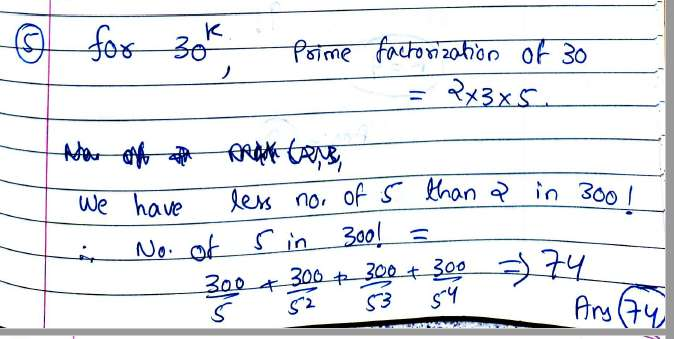 ⑤ for 30^K, Prime factorization of 30
= 2×3×5.
We have less no. of 5 than 2 in 300!
∴ No. of 5 in 300! =
300/5 + 300/5² + 300/5³ + 300/5⁴ ⇒ 74
Ans 74